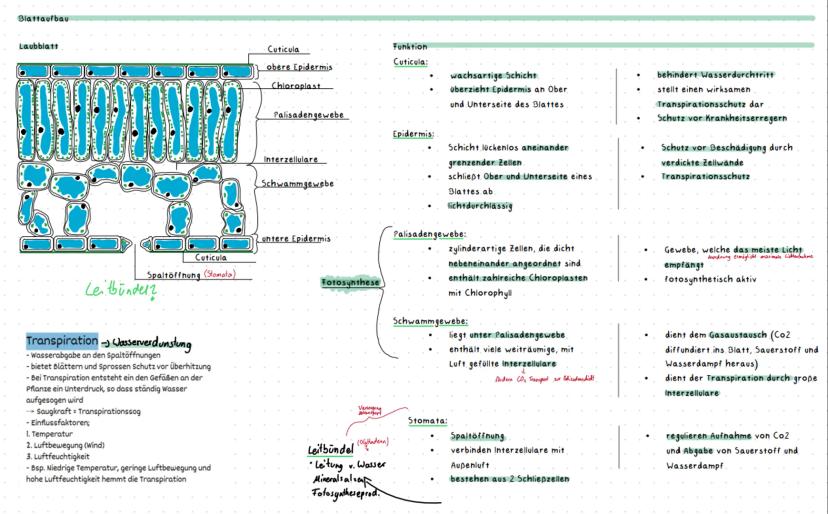 Blattaufbau
Laubblatt
Cuticula
obere Epidermis
Chloroplast
Palisadengewebe
Interzellulare
Schwammgewebe
untere Epidermis
Cuticula
Spaltöffnung (Stomata)
Leitbündel?
Transpiration → Wasserverdunstung
- Wasserabgabe an den Spaltöffnungen
- bietet Blättern und Sprossen Schutz vor Überhitzung
- Bei Transpiration entsteht ein den Gefäßen an der
Pflanze ein Unterdruck, so dass ständig Wasser
aufgesogen wird
→ Saugkraft = Transpirationssog
- Einflussfaktoren;
1. Temperatur
2. Luftbewegung (Wind)
3. Luftfeuchtigkeit
- Bsp. Niedrige Temperatur, geringe Luftbewegung und
hohe Luftfeuchtigkeit hemmt die Transpiration
Funktion
Cuticula:
• wachsartige Schicht
• überzieht Epidermis an Ober
und Unterseite des Blattes
• behindert Wasserdurchtritt
• stellt einen wirksamen
Transpirationsschutz dar
• Schutz vor Krankheitserregern
Epidermis:
• Schicht lückenlos aneinander
grenzender Zellen
• schließt Ober und Unterseite eines
Blattes ab
• lichtdurchlässig
• Schutz vor Beschädigung durch
verdickte Zellwände
• Transpirationsschutz
Fotosynthese
Palisadengewebe:
• zylinderartige Zellen, die dicht
nebeneinander angeordnet sind
• enthält zahlreiche Chloroplasten
mit Chlorophyll
• Gewebe, welche das meiste Licht
empfängt
Anordnung ermöglicht maximale Lichtaufnahme
• fotosynthetisch aktiv
Schwammgewebe:
• liegt unter Palisadengewebe
• enthält viele weiträumige, mit
Luft gefüllte Interzellulare
CO₂ Transport zur
• dient dem Gasaustausch (Co2
diffundiert ins Blatt, Sauerstoff und
Wasserdampf heraus)
• dient der Transpiration durch große
Interzellulare
Stomata:
• Spaltöffnung
• verbinden Interzellulare mit
Außenluft
• bestehen aus 2 Schließzellen
• regulieren Aufnahme von Co2
und Abgabe von Sauerstoff und
Wasserdampf
Leitbündel
• Leitung v. Wasser
Mineralsalzen
Fotosyntheseprod.